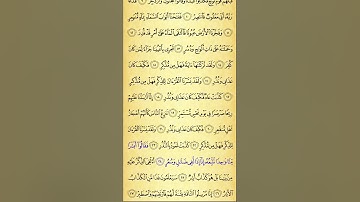 قَبْلَهُمْ قَوْمُ نُوحٍ فَكَذَّبُوا۟ عَبْدَنَا وَقَالُوا۟ مَجْنُونٌ وَٱزْدُجِرَ ٩ فَدَعَا
رَبَّهُۥٓ أَنِّى مَغْلُوبٌ فَٱنتَصِرْ ١٠ فَفَتَحْنَآ أَبْوَٰبَ ٱلسَّمَآءِ بِمَآءٍ مُّنْهَمِرٍ
١١ وَفَجَّرْنَا ٱلْأَرْضَ عُيُونًا فَٱلْتَقَى ٱلْمَآءُ عَلَىٰٓ أَمْرٍ قَدْ قُدِرَ ١٢
وَحَمَلْنَٰهُ عَلَىٰ ذَاتِ أَلْوَٰحٍ وَدُسُرٍ ١٣ تَجْرِى بِأَعْيُنِنَا جَزَآءً لِّمَن كَانَ
كُفِرَ ١٤ وَلَقَد تَّرَكْنَٰهَآ ءَايَةً فَهَلْ مِن مُّدَّكِرٍ ١٥ فَكَيْفَ كَانَ
عَذَابِى وَنُذُرِ ١٦ وَلَقَدْ يَسَّرْنَا ٱلْقُرْءَانَ لِلذِّكْرِ فَهَلْ مِن مُّدَّكِرٍ
١٧ كَذَّبَتْ عَادٌ فَكَيْفَ كَانَ عَذَابِى وَنُذُرِ ١٨ إِنَّآ أَرْسَلْنَا عَلَيْهِمْ
رِيحًا صَرْصَرًا فِى يَوْمِ نَحْسٍ مُّسْتَمِرٍّ ١٩ تَنزِعُ ٱلنَّاسَ كَأَنَّهُمْ أَعْجَازُ
نَخْلٍ مُّنقَعِرٍ ٢٠ فَكَيْفَ كَانَ عَذَابِى وَنُذُرِ ٢١ وَلَقَدْ يَسَّرْنَا ٱلْقُرْءَانَ
لِلذِّكْرِ فَهَلْ مِن مُّدَّكِرٍ ٢٢ كَذَّبَتْ ثَمُودُ بِٱلنُّذُرِ ٢٣ فَقَالُوٓا۟ أَبَشَرًا
مِّنَّا وَٰحِدًا نَّتَّبِعُهُۥٓ إِنَّآ إِذًا لَّفِى ضَلَٰلٍ وَسُعُرٍ ٢٤ أَءُلْقِىَ ٱلذِّكْرُ عَلَيْهِ
مِنۢ بَيْنِنَا بَلْ هُوَ كَذَّابٌ أَشِرٌ ٢٥ سَيَعْلَمُونَ غَدًا مَّنِ ٱلْكَذَّابُ
ٱلْأَشِرُ ٢٦ إِنَّا مُرْسِلُوا۟ ٱلنَّاقَةِ فِتْنَةً لَّهُمْ فَٱرْتَقِبْهُمْ وَٱصْطَبِرْ ٢٧